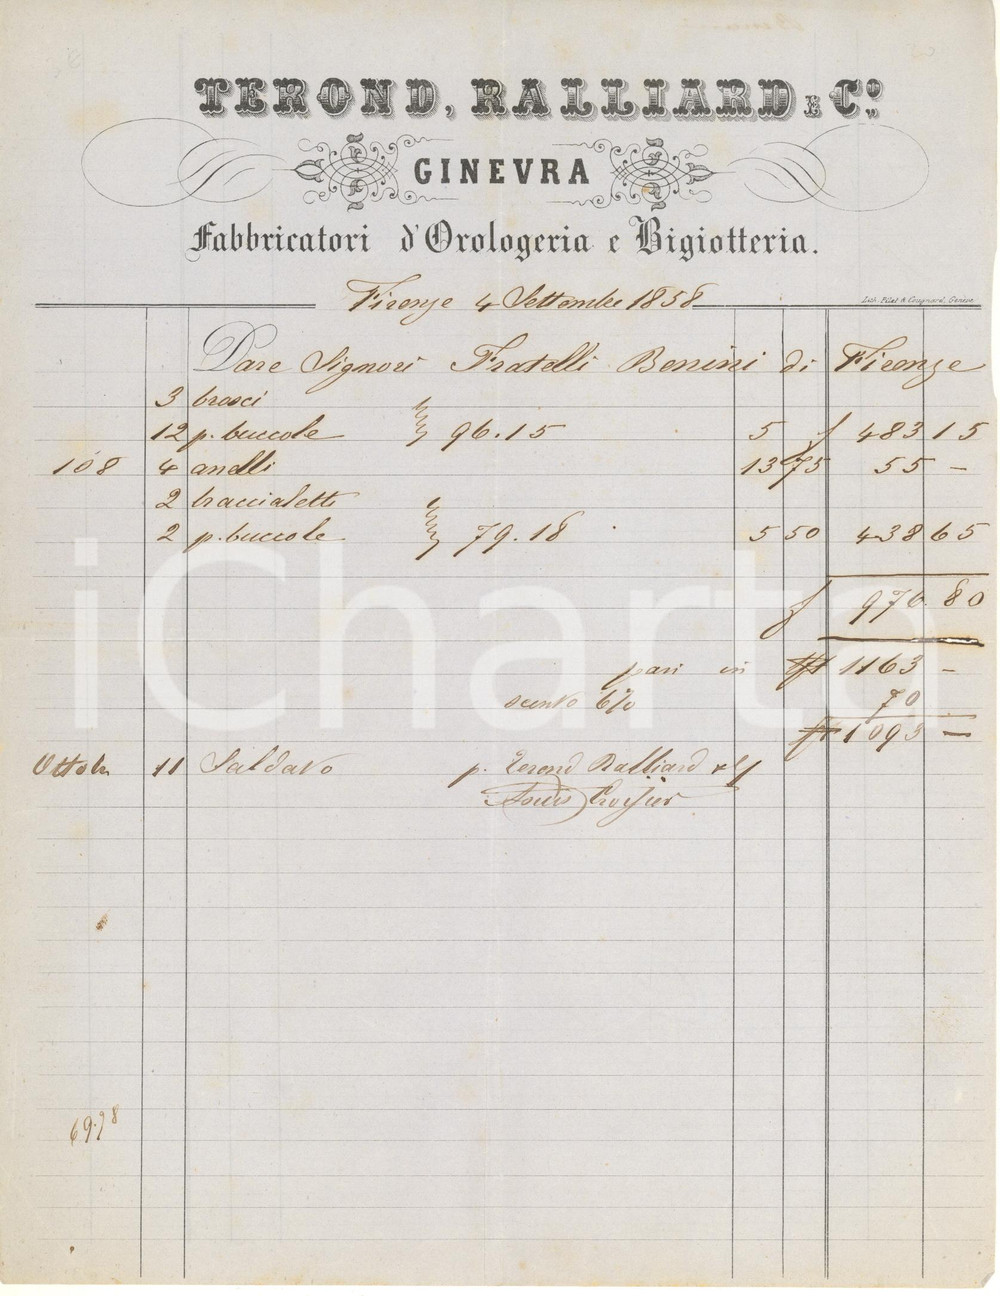 TEROND, RALLIARD E C.º
GINEVRA
Fabbricatori d'Orologeria e Bigiotteria.
Firenze 4 Settembre 1858
Lith. Pilet & Cougnard, Genève
Dare Signori Fratelli Bonini di Firenze
3 brosci
12 p. buccole 96.15 5 f 483 15
108 4 anelli 13 75 55 —
2 braccialetti
2 p. buccole 79.18 5 50 438 65
f 976.80
pari in 1163 —
sconto 6% 70
1093 —
Ottobr 11 Saldato p. Terond Ralliard
Louis
69.78
iCharta